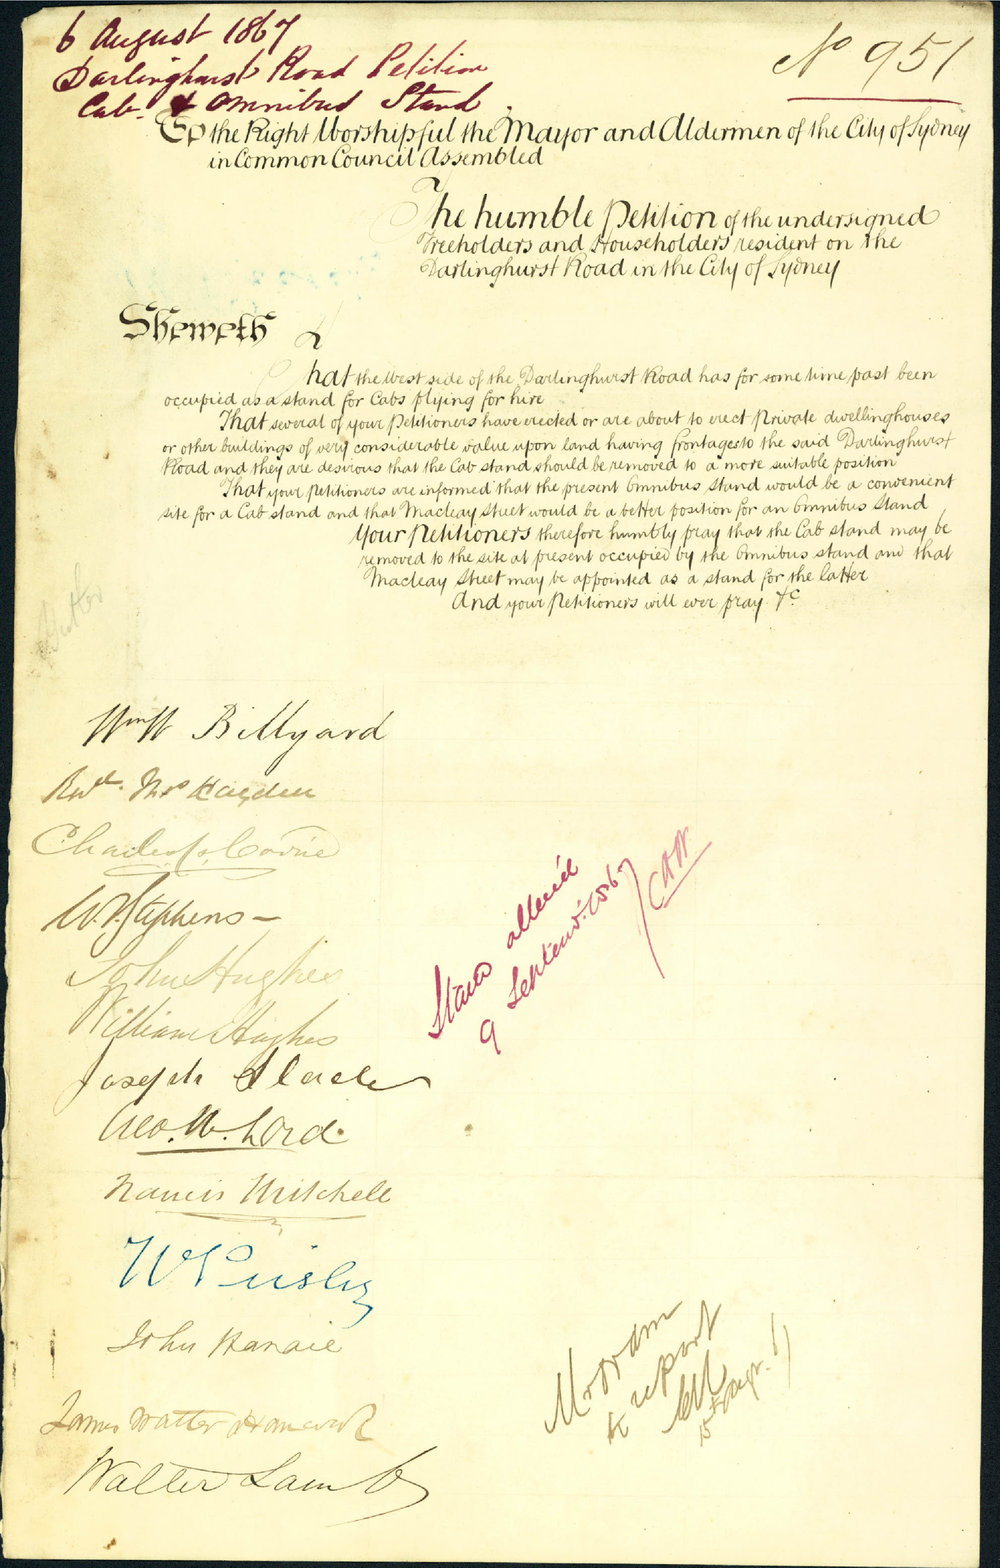 6 August 1867
Darlinghurst Road Petition
Cab & Omnibus Stand.
No 951
To the Right Worshipful the Mayor and Aldermen of the City of Sydney
in Common Council Assembled
The humble Petition of the undersigned
Freeholders and Householders resident on the
Darlinghurst Road in the City of Sydney
Sheweth
That the West side of the Darlinghurst Road has for some time past been
occupied as a stand for Cabs plying for hire
That several of your Petitioners have erected or are about to erect Private dwellinghouses
or other buildings of very considerable value upon land having frontages to the said Darlinghurst
Road and they are desirous that the Cab stand should be removed to a more suitable position
That your Petitioners are informed that the present Omnibus stand would be a convenient
site for a Cab stand and that Macleay Street would be a better position for an Omnibus Stand
Your Petitioners therefore humbly pray that the Cab stand may be
removed to the site at present occupied by the Omnibus stand and that
Macleay Street may be appointed as a stand for the latter
And your Petitioners will ever pray &c
Wm W Billyard
Charles
W. Stephens
John Hughes
William Hughes
Joseph
Geo. W. Lord.
Francis Mitchell
John
James Walter Hancock
Walter Lamb
Stand altered
9 Septemr. 1867
to report
15 Augt.